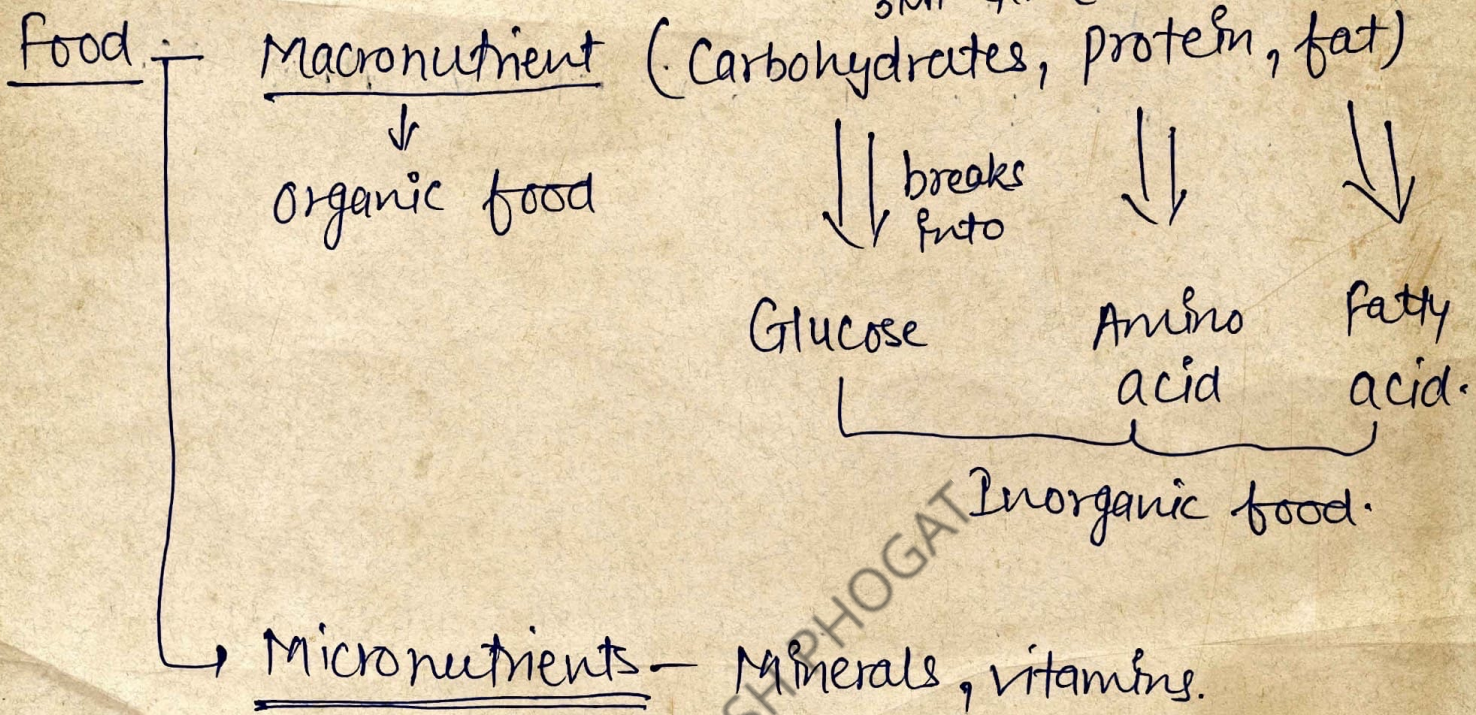 Food :- Macronutrient (Carbohydrates, protein, fat)
organic food
breaks
into
Glucose Amino acid Fatty acid.
Inorganic food.
PHOGAT
Micronutrients - Minerals, vitamins.